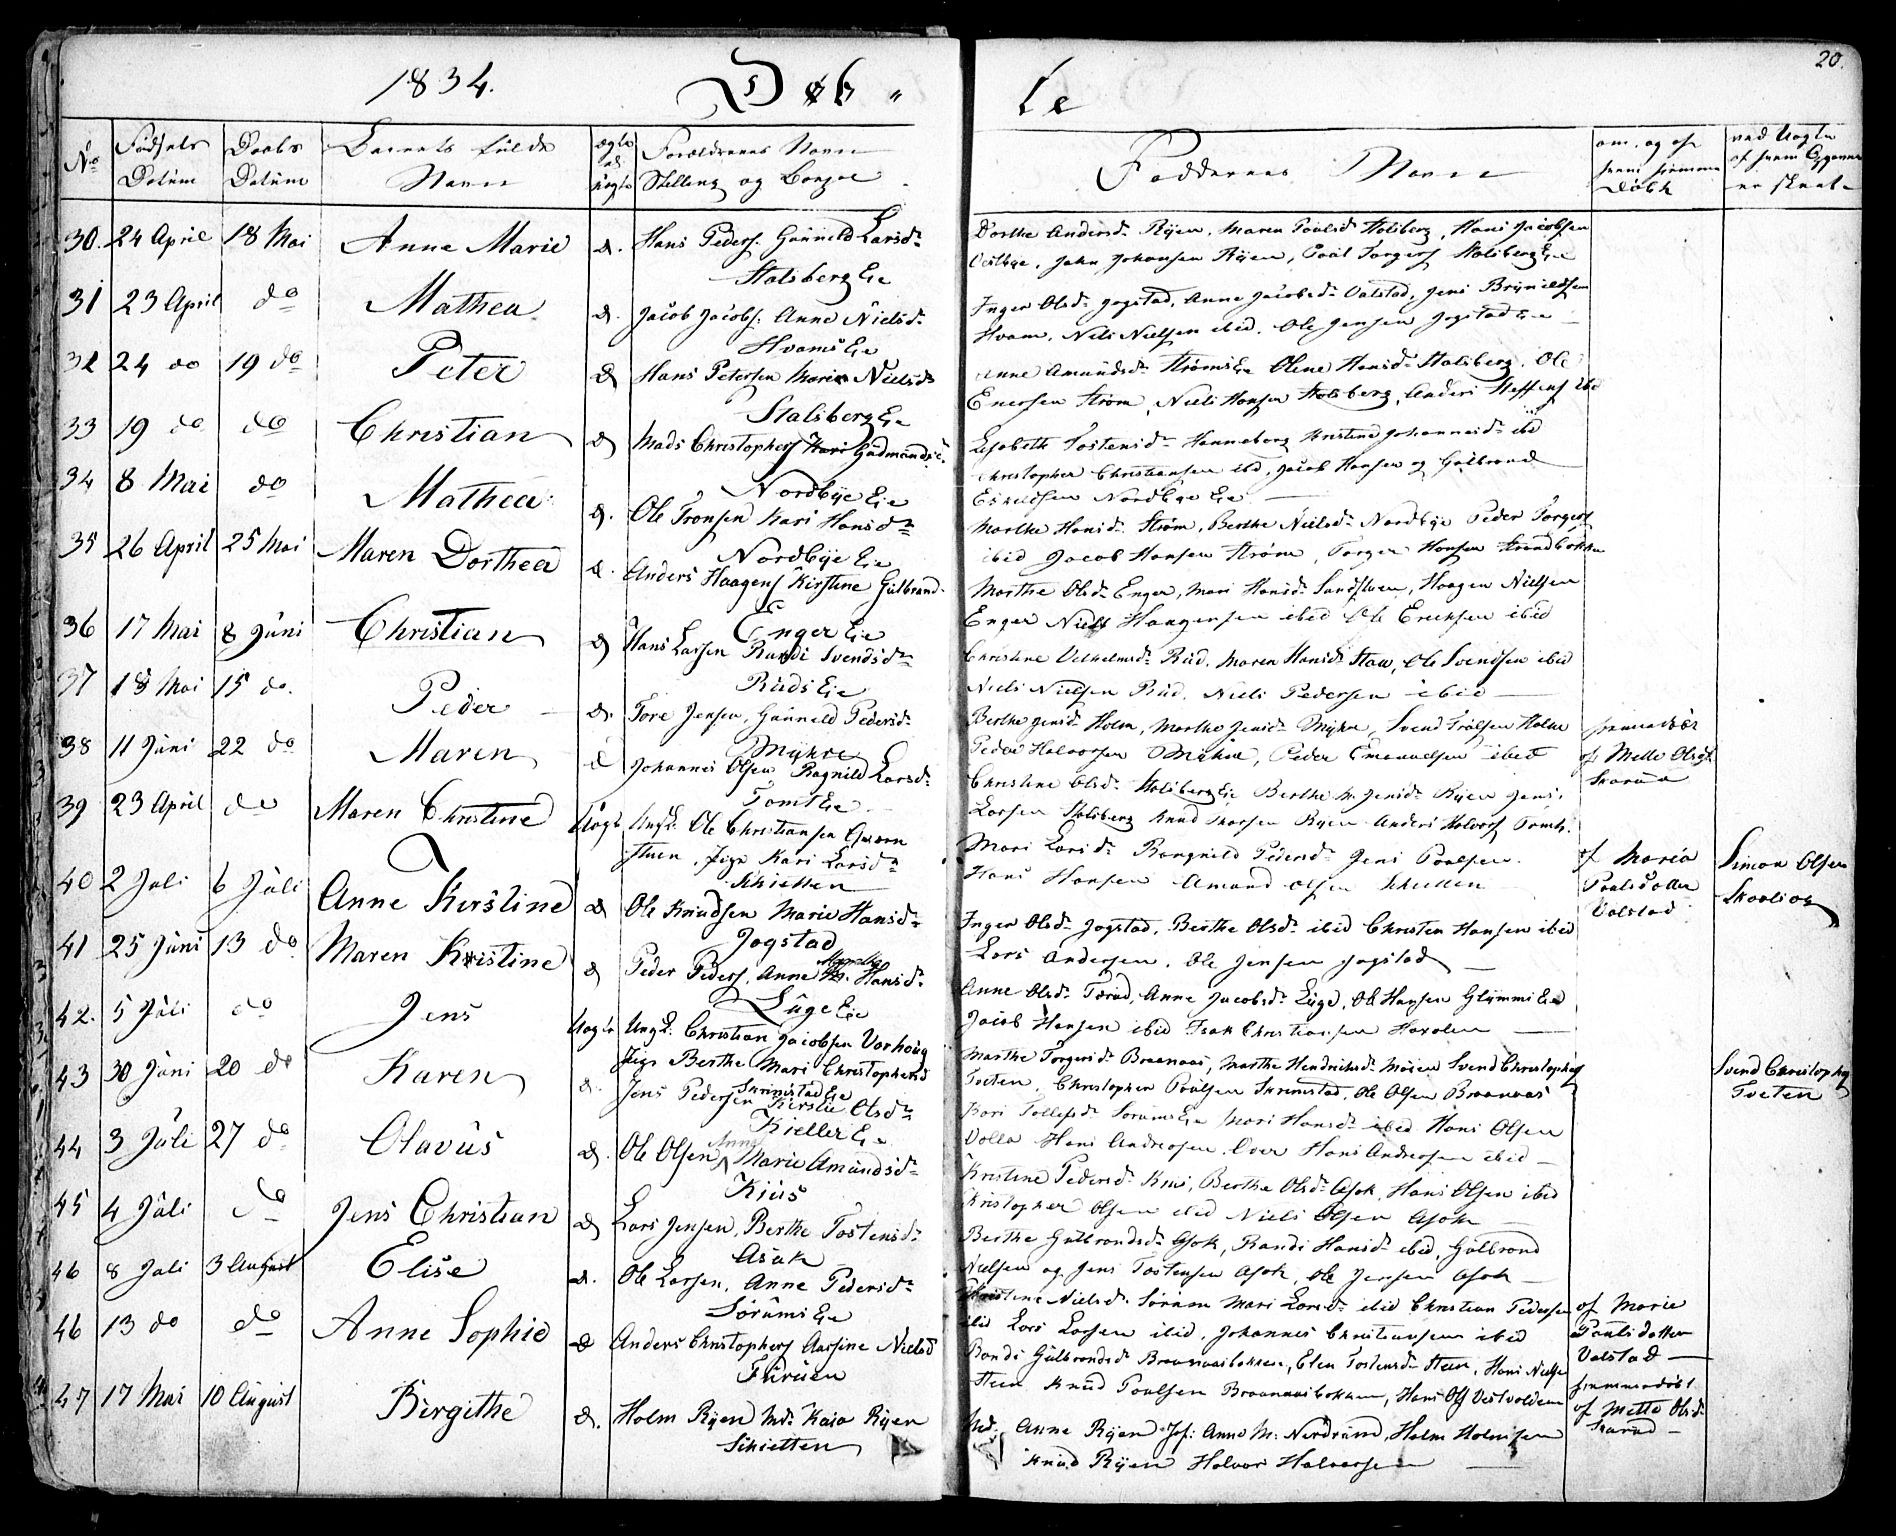 1834. Døb-
te
20.
No
Fødsels Datum
Daabs Datum
Barnets fulde Navn
ægte el. uægte
Forældrenes Navn Stilling og Bopæl
Faddernes Navne
om, og af hvem hjemme døbt
30. 24 April 18 Mai Anne Marie æ. Hans Peders. Gunneld Larsd.
Stalsberg Eie
31 23 April do Mathea æ. Jacob Jacobs. Anne Nielsd.
Hvams Eie
32 24 do 19 do Peter æ Hans Petersen Marie Nielsd
Stalsberg Eie
33 19 do do Christian æ Mads Christophers Kari Gudmundsd.
Nordbye Eie
34 8 Mai do Mathea æ. Ole Tronsen Kari Hansd.
Nordbye Eie
35 26 April 25 Mai Maren Dorthea æ. Anders Haagens Kirstine Gulbrand.
Enger Eie
36 17 Mai 8 Juni Christian æ Hans Larsen Randi Svendsd.
Ruds Eie
37 18 Mai 15 do. Peder æ. Tore Jensen, Gunneld Pedersd.
Myhre
38 11 Juni 22 do Maren æ Johannes Olsen Ragnild Larsd.
Tomt Eie
39 23 April do Maren Christine Uægte Ungk. Ole Christiansen
stuen, Pige Kari Larsd.
Schietten
40 2 Juli 6 Juli Anne Kirstine æ Ole Knudsen Marie Hansd.
Jogstad
41 25 Juni 13 do Maren Kristine æ Peder Peders, Anne M. Hansd.
Luge Eie
42. 5 Juli do Jens Uægte Ungk. Christian Jacobsen Vorhoug
Pige Berthe Mari Christophersd
Skrimstad Eie
43 30 Juni 20 do Karen æ. Jens Pedersen Kirstie Olsd.
Kieller Eie
44 3 Juli 27 do Olavus æ. Ole Olsen Anne Marie Amundsd.
Kius
45 4 Juli do Jens Christian æ Lars Jensen, Berthe Tostensd.
Asak
46 8 Juli 3 August Elise æ. Ole Larsen, Anne Pedersd.
Sørums Eie
46 13 do do Anne Sophie æ Anders Christophers Aassine Nielsd
Furuen
47 17 Mai 10 August Birgithe æ. Holm Ryen Md. Kaia Ryen
Schietten
Dorthe Andersd. Ryen, Maren Poulsd. Stalsberg, Hans Jacobsen
Vestbye, John Johansen Ryen, Poul Torgers Stalsberg Eie
Inger Olsd. Jogstad, Anne Jacobsd. Valstad, Jens Brynildsen
Hvam, Nils Nielsen ibid. Ole Jensen Jogstad Eie
Anne Amundsd. Strøms Eie Olene Hansd. Stalsberg. Ole
Enersen Strøm, Niels Hansen Stalsberg, Anders Steffens ibid
Lisabeth Tostensd. Henneborg Kristine Johannesd. ibid
Christopher Christiansen ibid, Jacob Hansen og Gulbrand
Eskildsen Nordbye Eie
Marthe Hansd. Strøm, Berthe Nielsd. Nordbye Peder Torgers
ibid Jacob Hansen Strøm, Torger Hansen
Marthe Olsd. Enger, Mari Hansd. Haagen Nielsen
Enger Niels Haagensen ibid Ole Erichsen ibid
Christine Vilhelmsd. Rud, Maren Hansd. Ole Svendsen ibid
Niels Nielsen Rud, Niels Pedersen ibid
Berthe Jensd. Holm, Marthe Jensd. Myhre, Svend Holm
Peder Halvorsen Myhre, Peder Emanuelsen ibid
af Mette Olsd.
Skarud
Christine Olsd. Stalsberg Eie Berthe M. Jensd. Ryen Jens
Larsen Stalsberg Knud Ryen Anders Halvors Tomt.
Mari Larsd. Rangnild Pedersd. Jens Poulsen.
Hans Hansen Amund Olsen Schietten
af Maria
Poulsdatter
Valstad
Simon Olsen
Inger Olsd. Jogstad, Berthe Olsd. ibid Christen Hansen ibid
Lars Andersen, Ole Jensen Jogstad
Anne Olsd. Anne Jacobsd. Luge, Ole Hansen Eie
Jacob Hansen ibid Isak Christiansen
Marthe Torgersd. Braanaas, Marthe Hendriksd. Svend Christophers
Tveten, Christopher Poulsen Skrimstad, Ole Olsen Braanaas
Svend Christophs
Tveten
Kari Tollefsd. Sørums Eie Mari Hansd. ibid Hans Olsen
Volla Hans Andersen Hans Andersen ibid
Kristine Pedersd. Kius, Berthe Olsd. Asak, Hans Olsen ibid
Kristopher Olsen ibid Niels Olsen Asak
Berthe Gulbrandsd. Asak, Randi Hansd. ibid, Gulbrand
Nielsen og Jens Tostensen Asak, Ole Jensen Asak
Christine Nielsd. Sørum Mari Larsd. ibid Christian Pedersen
ibid Lars Larsen ibid, Johannes Christiansen ibid
af Marie
Poulsdatter
Valstad
Randi Gulbrandsd. Braanaasbakken, Elen Tostensd. Steen, Hans Nielsen
Steen Knud Poulsen Braanaasbakken, Hans Ols Vestvolden
hjemmedøbt
af Mette Olsd.
Skarud
Md. Anne Ryen Jf. Anne M. Nordrum, Holm Holmsen
Knud Ryen Halvor Halvorsen